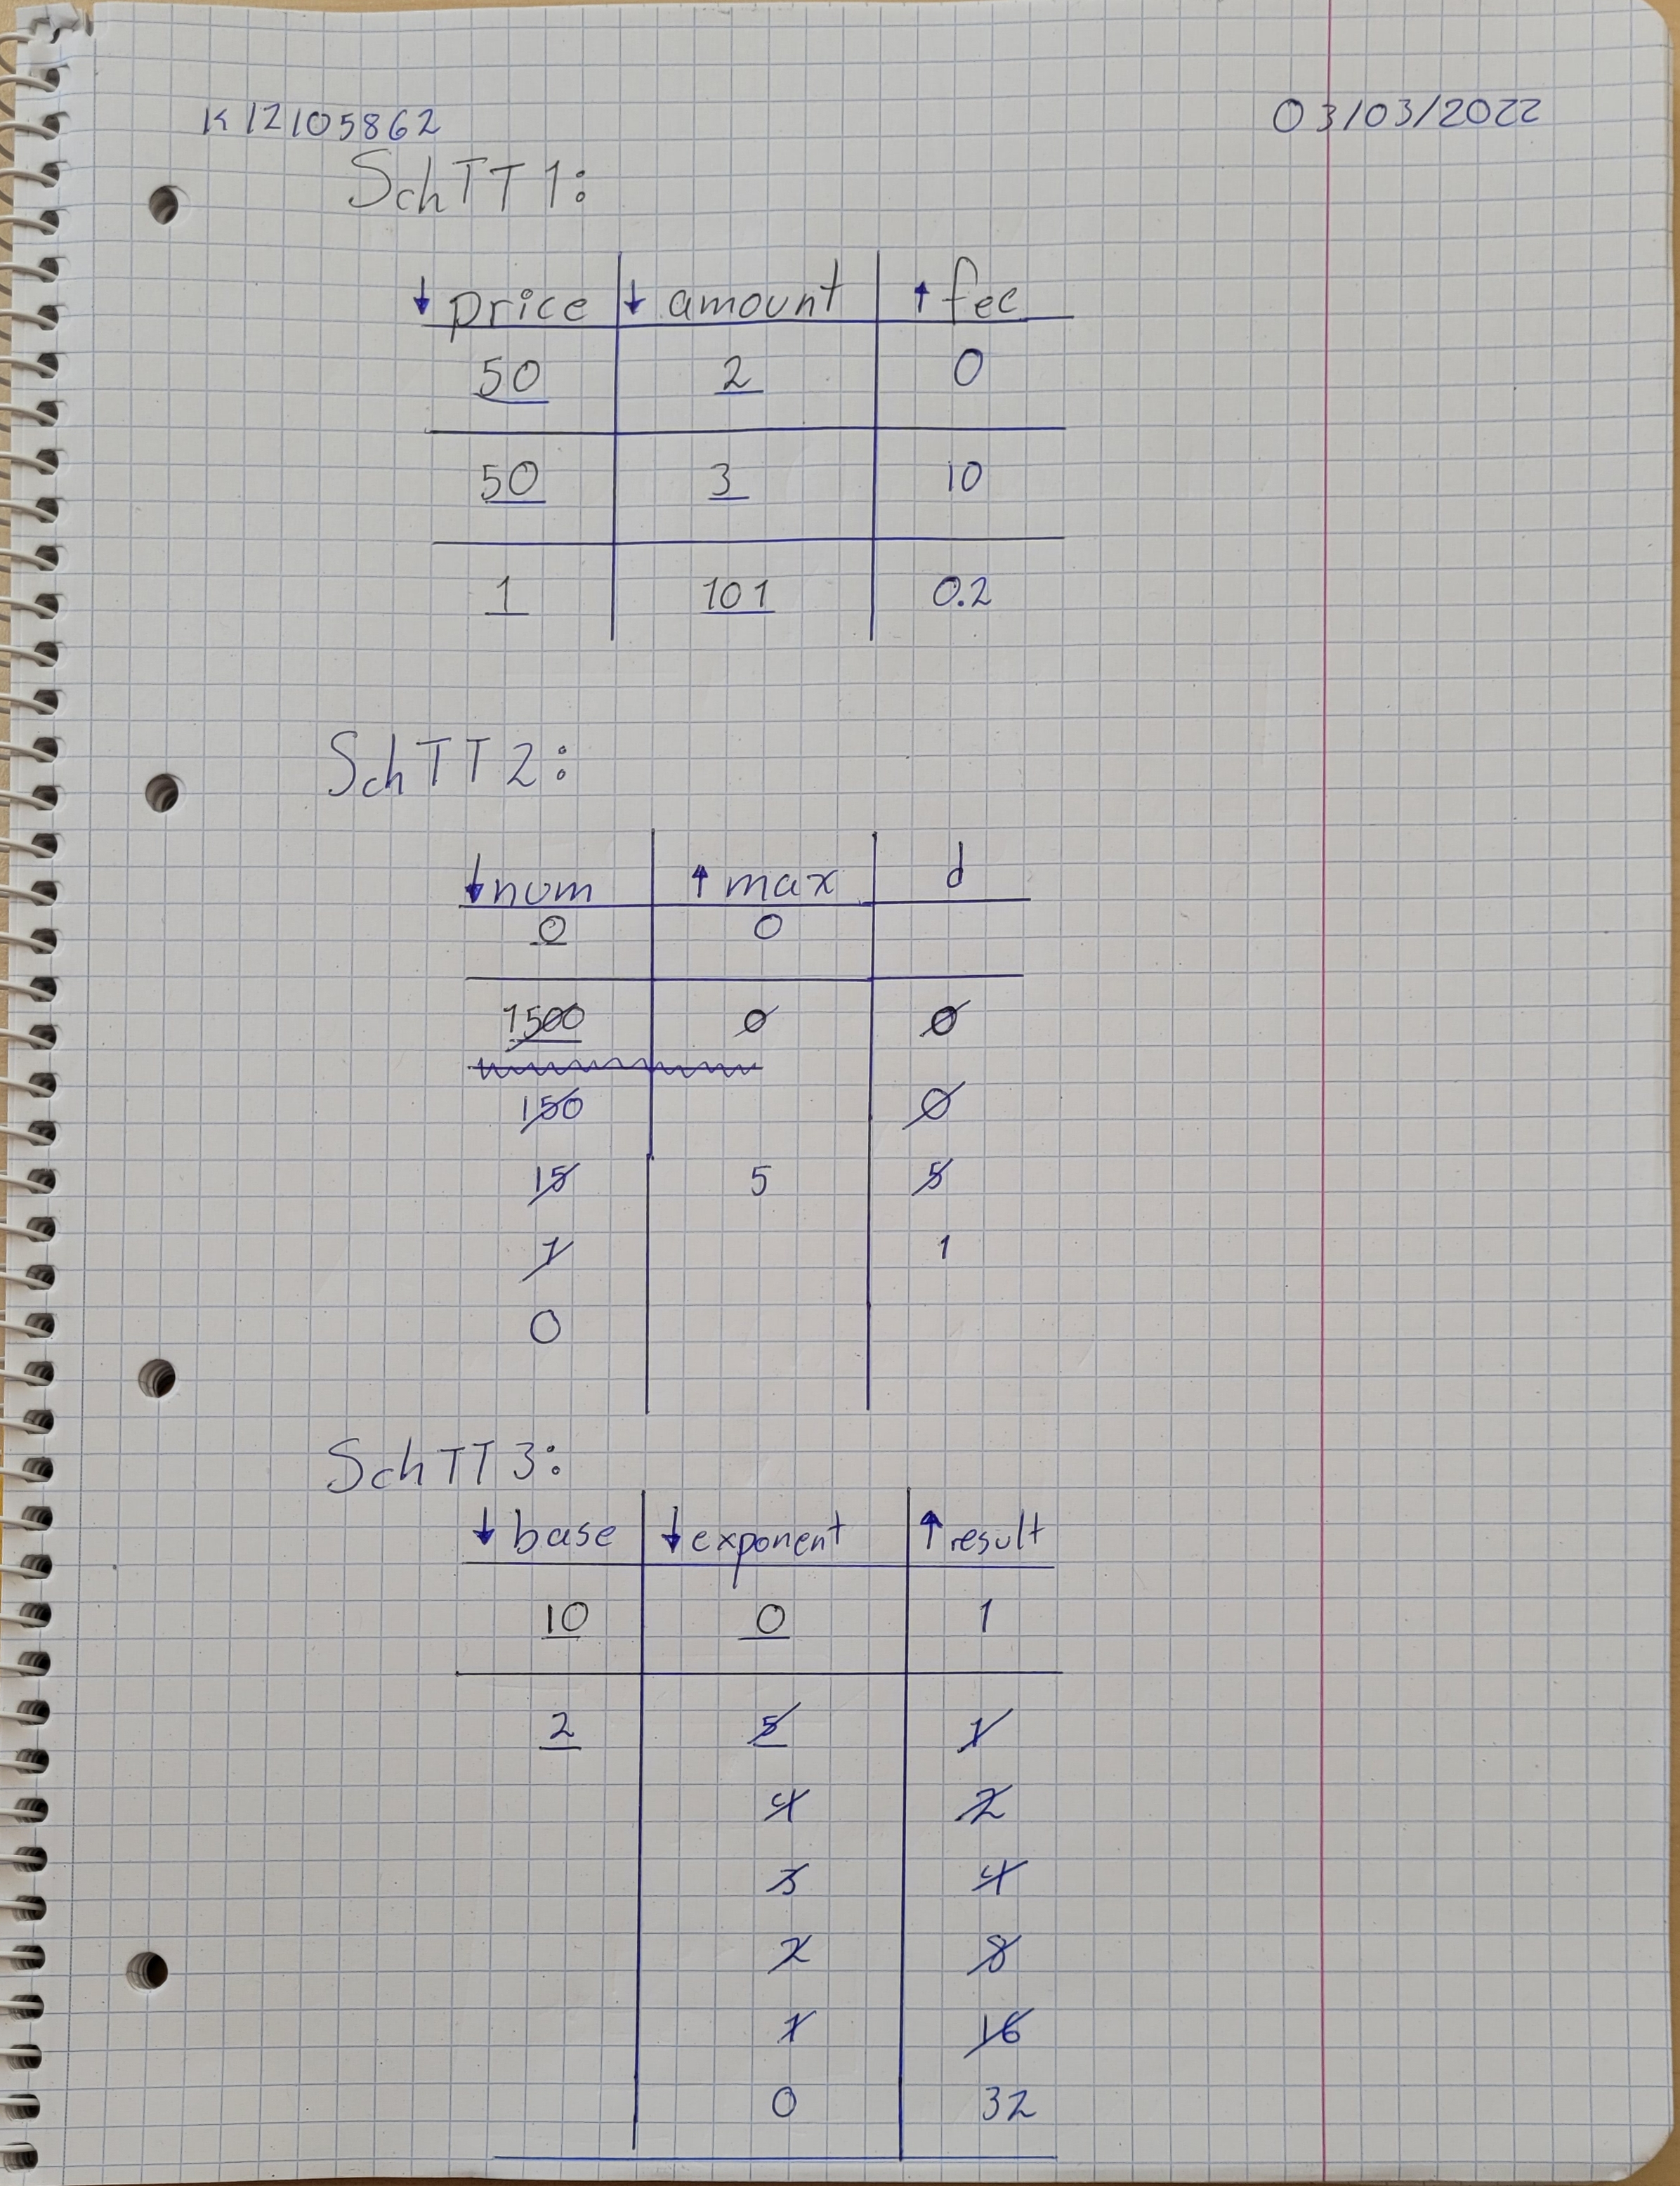 K12105862 03/03/2022
SchTT1:
↓ price ↓ amount ↑ fee
50 2 0
50 3 10
1 101 0.2
SchTT2:
↓ num ↑ max d
0 0
1500 0 0
150 0
15 5 5
1 1
0
SchTT3:
↓ base ↓ exponent ↑ result
10 0 1
2 5 1
4 2
3 4
2 8
1 16
0 32